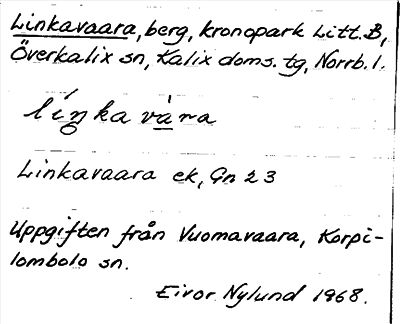 Linkavaara, berg, kronopark Litt. B,
Överkalix sn, Kalix doms. tg, Norrb. l.
líŋka và̱ra
Linkavaara ek, Gn 23
Uppgiften från Vuomavaara, Korpi-
lombolo sn.
Eivor Nylund 1968.